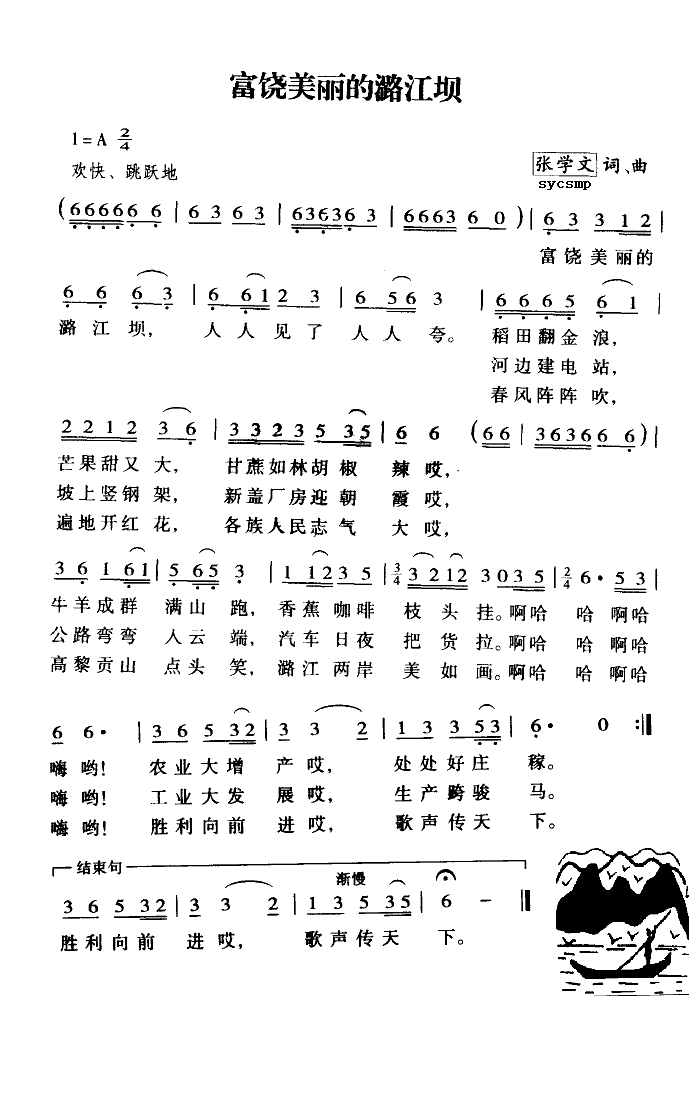 富饶美丽的潞江坝
1=A 2/4
欢快、跳跃地
张学文 词、曲
sycsmp
(66666 6 | 6 3 6 3 | 63636 3 | 6663 6 0) | 6 3 3 12 |
富饶美丽的
6 6 6 3 | 6 61 2 3 | 6 56 3 | 6 6 6 5 6 1 |
潞江坝, 人人见了人人夸。 稻田翻金浪,
河边建电站,
春风阵阵吹,
2 2 1 2 3 6 | 3 3 2 3 5 35 | 6 6 (66 | 36366 6) |
芒果甜又大, 甘蔗如林胡椒辣哎,
坡上竖钢架, 新盖厂房迎朝霞哎,
遍地开红花, 各族人民志气大哎,
3 6 1 61 | 5 65 3 | 1 12 3 5 | 3/4 3 212 3 0 3 5 | 2/4 6· 5 3 |
牛羊成群满山跑, 香蕉咖啡枝头挂。啊哈哈啊哈
公路弯弯入云端, 汽车日夜把货拉。啊哈哈啊哈
高黎贡山点头笑, 潞江两岸美如画。啊哈哈啊哈
6 6· | 3 6 5 32 | 3 3 2 | 1 3 3 53 | 6· 0 :‖
嗨哟! 农业大增产哎, 处处好庄稼。
嗨哟! 工业大发展哎, 生产跨骏马。
嗨哟! 胜利向前进哎, 歌声传天下。
结束句 渐慢
3 6 5 32 | 3 3 2 | 1 3 5 35 | 6 - ‖
胜利向前进哎, 歌声传天下。